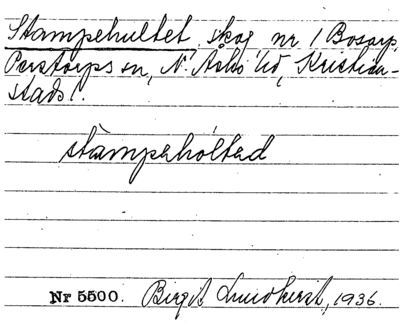 Stampehultet, skog nr 1 Bosarp,
Perstorps sn, N. Åsbo hd, Kristian-
stads l.
stàmpehóltəd
Nr 5500. Birgit Lundkvist, 1936.